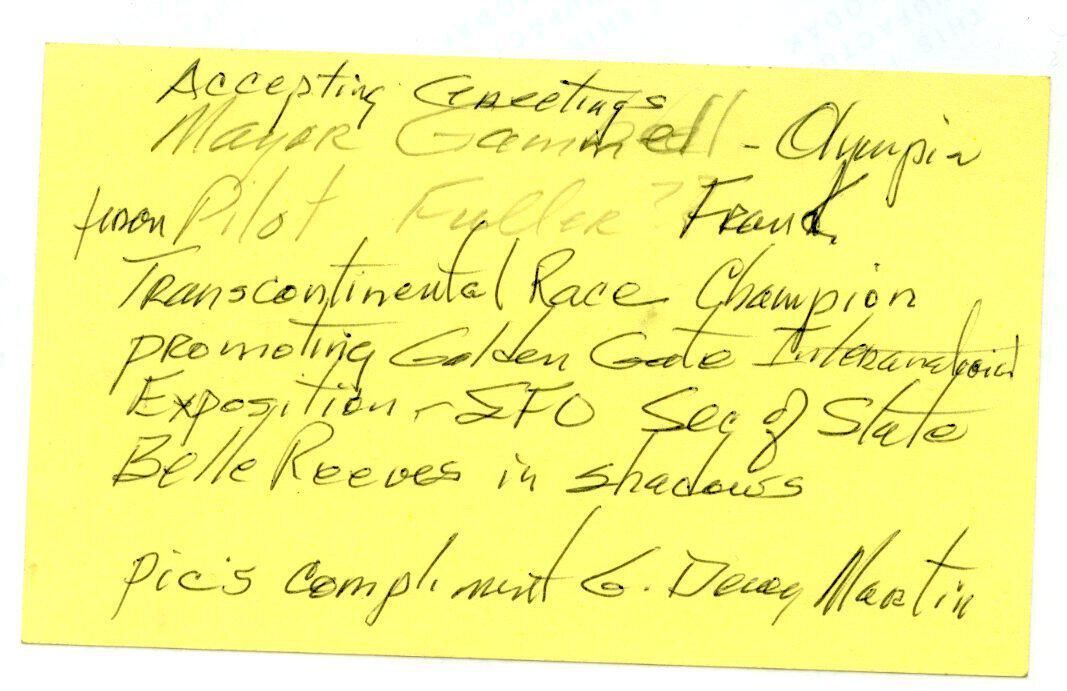 Accepting Greetings
Mayor Gammell - Olympia
from Pilot Fuller ?? Frank
Transcontinental Race Champion
promoting Golden Gate International
Exposition - SFO Sec of State
Belle Reeves in shadows
pic's compliment G. Dewey Martin